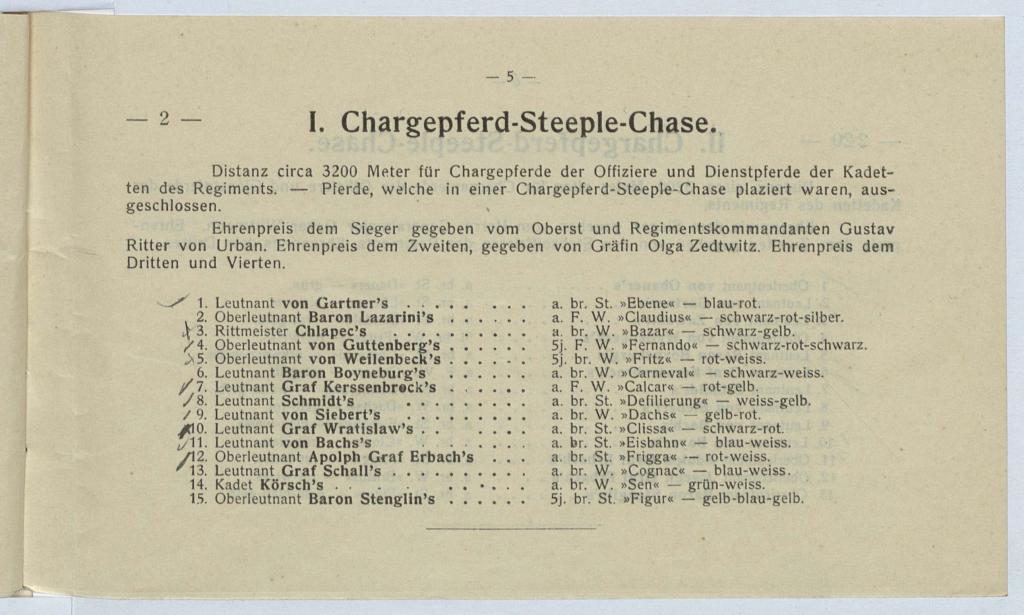 — 5 —
— 2 — I. Chargepferd-Steeple-Chase.
Distanz circa 3200 Meter für Chargepferde der Offiziere und Dienstpferde der Kadet-
ten des Regiments. — Pferde, welche in einer Chargepferd-Steeple-Chase plaziert waren, aus-
geschlossen.
Ehrenpreis dem Sieger gegeben vom Oberst und Regimentskommandanten Gustav
Ritter von Urban. Ehrenpreis dem Zweiten, gegeben von Gräfin Olga Zedtwitz. Ehrenpreis dem
Dritten und Vierten.
1. Leutnant von Gartner's . . . . . . . . . a. br. St. »Ebene« — blau-rot.
2. Oberleutnant Baron Lazarini's . . . . . . a. F. W. »Claudius« — schwarz-rot-silber.
3. Rittmeister Chlapec's . . . . . . . . . . a. br. W. »Bazar« — schwarz-gelb.
4. Oberleutnant von Guttenberg's . . . . . . 5j. F. W. »Fernando« — schwarz-rot-schwarz.
5. Oberleutnant von Weilenbeck's . . . . . . 5j. br. W. »Fritz« — rot-weiss.
6. Leutnant Baron Boyneburg's . . . . . . . a. br. W. »Carneval« — schwarz-weiss.
7. Leutnant Graf Kerssenbrock's . . . . . . a. F. W. »Calcar« — rot-gelb.
8. Leutnant Schmidt's . . . . . . . . . . a. br. St. »Defilierung« — weiss-gelb.
9. Leutnant von Siebert's . . . . . . . . . a. br. W. »Dachs« — gelb-rot.
10. Leutnant Graf Wratislaw's . . . . . . . a. br. St. »Clissa« — schwarz-rot.
11. Leutnant von Bachs's . . . . . . . . . a. br. St. »Eisbahn« — blau-weiss.
12. Oberleutnant Apolph Graf Erbach's . . . . a. br. St. »Frigga« — rot-weiss.
13. Leutnant Graf Schall's . . . . . . . . . a. br. W. »Cognac« — blau-weiss.
14. Kadet Körsch's . . . . . . . . . . . a. br. W. »Sen« — grün-weiss.
15. Oberleutnant Baron Stenglin's . . . . . . 5j. br. St. »Figur« — gelb-blau-gelb.